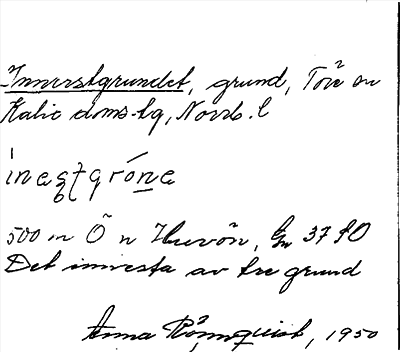 Innerstgrundet, grund, Töre sn
Kalix doms.tg, Norrb. l
500 m Ö n Huvön, Gn 37 SO
Det innersta av tre grund
Anna Rönnquist, 1950